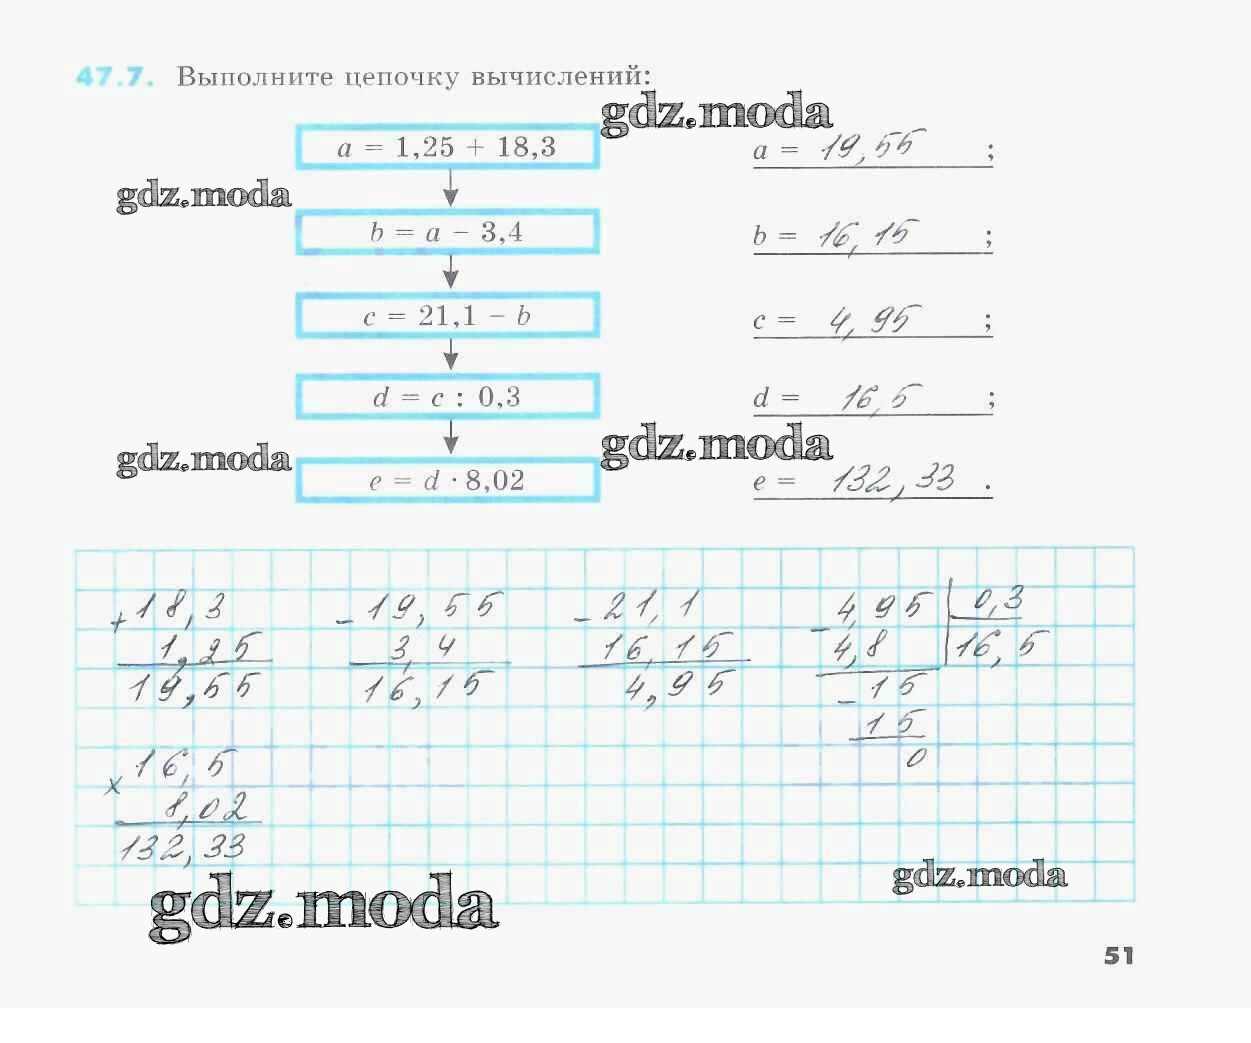 47.7. Выполните цепочку вычислений:
gdz.moda
a = 1,25 + 18,3
a = 19,55 ;
gdz.moda
b = a − 3,4
b = 16,15 ;
c = 21,1 − b
c = 4,95 ;
d = c : 0,3
d = 16,5 ;
gdz.moda
gdz.moda
e = d · 8,02
e = 132,33 .
+ 18,3
1,25
19,55
- 19,55
3,4
16,15
- 21,1
16,15
4,95
- 4,95 0,3
4,8 16,5
- 15
15
0
x 16,5
8,02
132,33
gdz.moda
gdz.moda
51